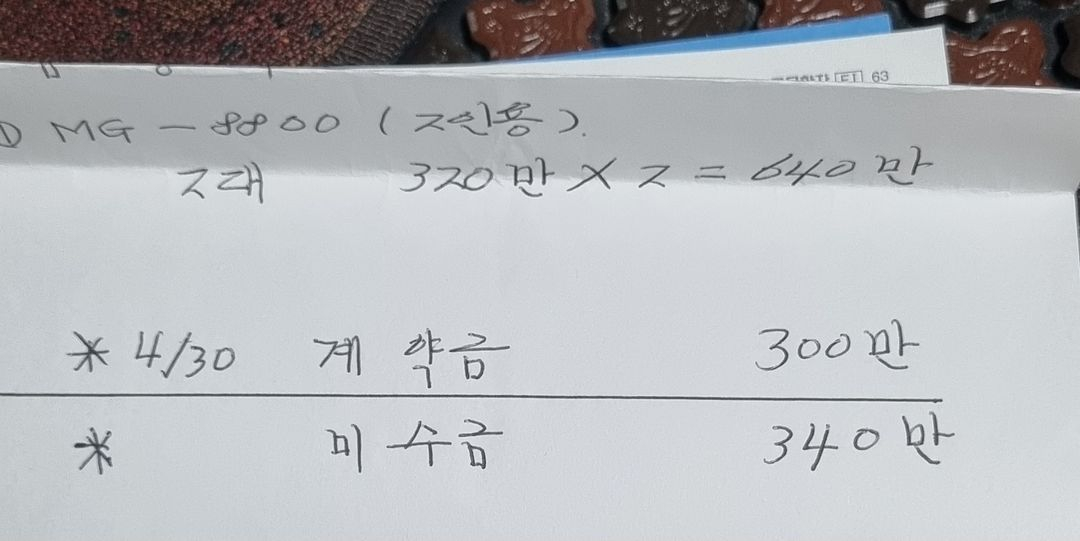 63
① MG - 8800 (2인용).
2대 320만 × 2 = 640만
* 4/30 계약금 300만
* 미수금 340만